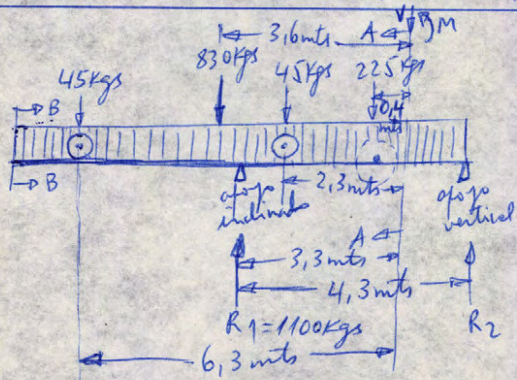 V M
3,6 mts A
830Kgs
45Kgs
45Kgs
225Kgs
0,4
mts
B
B
2,3 mts
apoyo
inclinado
apoyo
vertical
A
3,3 mts
4,3 mts
R1=1100Kgs
R2
6,3 mts